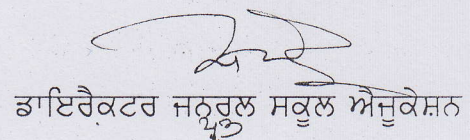 ਡਾਇਰੈਕਟਰ ਜਨਰਲ ਸਕੂਲ ਐਜੂਕੇਸ਼ਨ